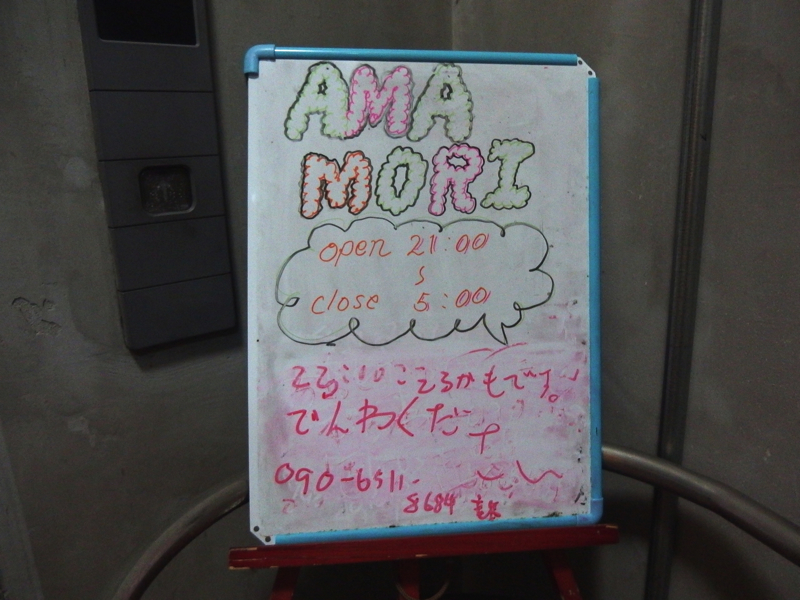 AMA
MORI
open 21:00
〜
close 5:00
ころかもです。
でんわくださ
090-6511-
8684